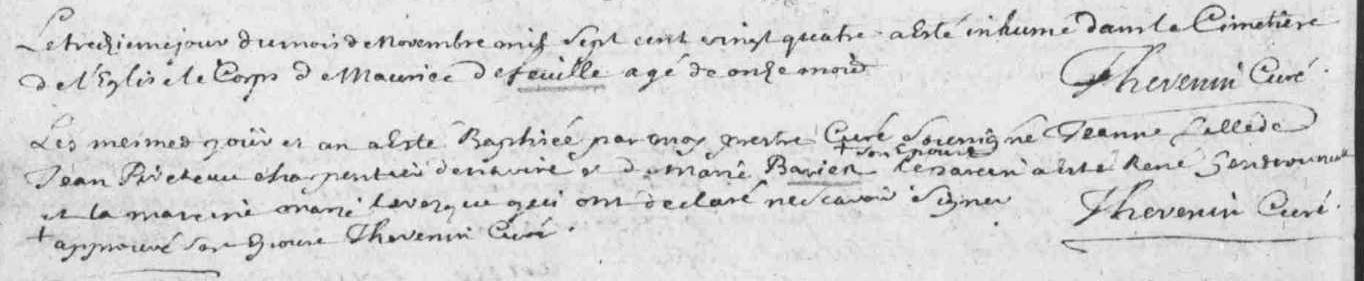 Le treizieme jour du mois de Novembre mil sept cent vingt quatre a Esté inhumé dans le Cimetière
de l'Eglise le Corps de Maurice defeuille agé de onze mois Thevenin Curé.
Les mesmes jour et an a Esté Baptisée par moy prestre Curé soussigné Jeanne fille de
+ son Epouse
Jean charpentier de navire & de Marie Barien le parein a Esté René
et la mareine marie levesque qui ont declaré ne scavoir signer Thevenin Curé.
+ approuvé son Epouse Thevenin Curé.